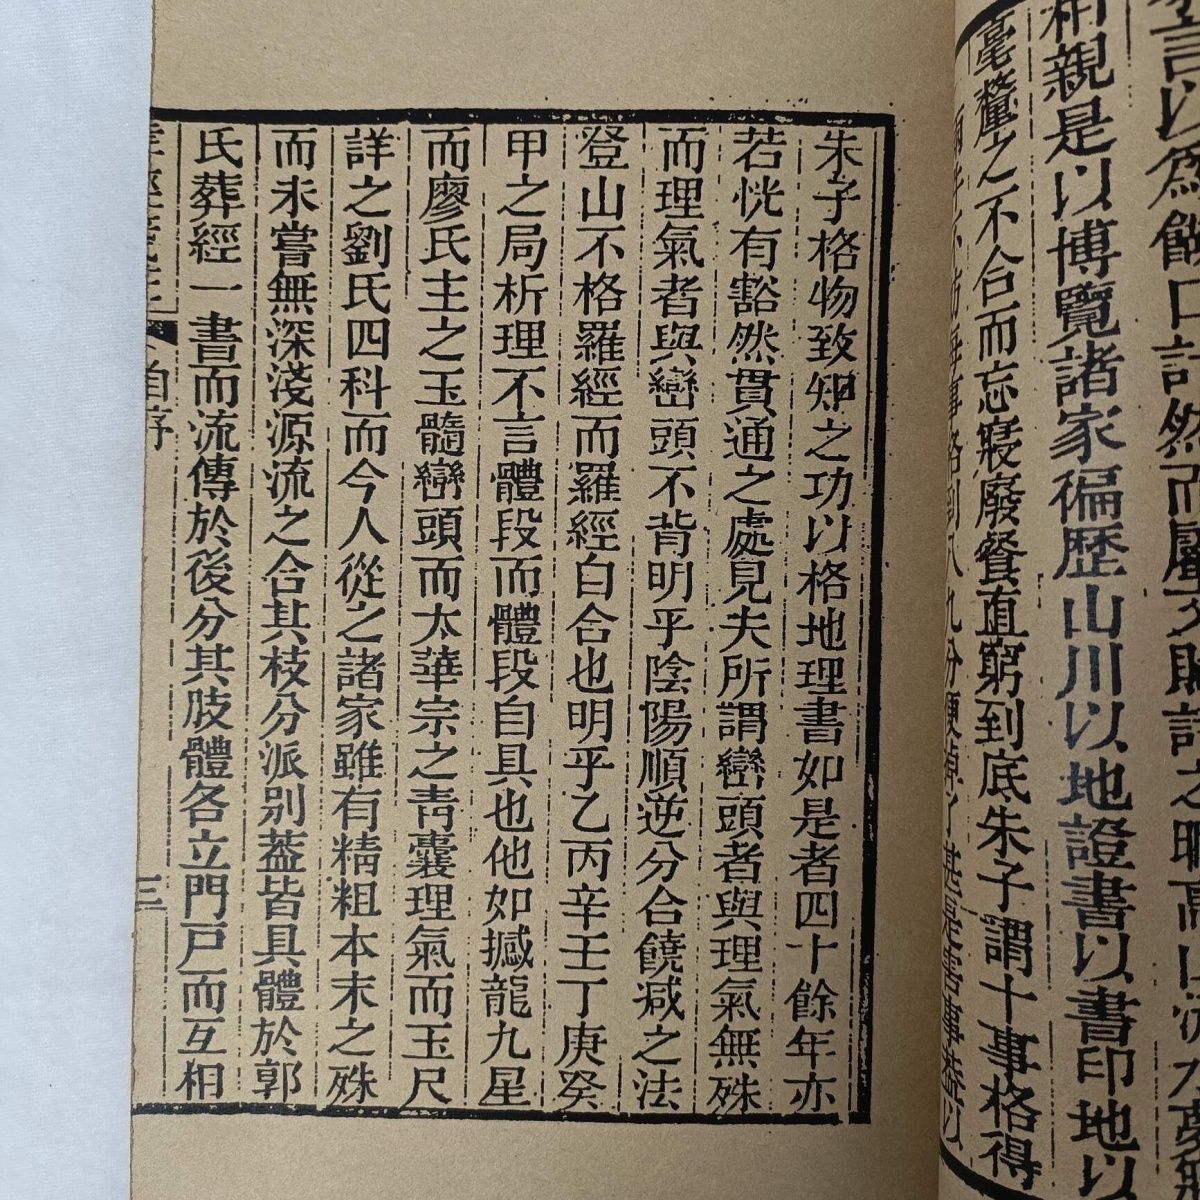 言以為餬口計然而
相親是以博覽諸家徧歴山川以地證書以書印地以
毫釐之不合而忘寢廢餐直窮到底朱子謂十事格得
事格到八九分
朱子格物致知之功以格地理書如是者四十餘年亦
若恍有豁然貫通之處見夫所謂巒頭者與理氣無殊
而理氣者與巒頭不背明乎陰陽順逆分合饒减之法
登山不格羅經而羅經自合也明乎乙丙辛壬丁庚癸
甲之局析理不言體段而體段自具也他如撼龍九星
而廖氏主之玉髓巒頭而太華宗之靑囊理氣而玉尺
詳之劉氏四科而今人從之諸家雖有精粗本末之殊
而未嘗無深淺源流之合其枝分派別葢皆具體於郭
氏葬經一書而流傳於後分其肢體各立門戸而互相
自序 三